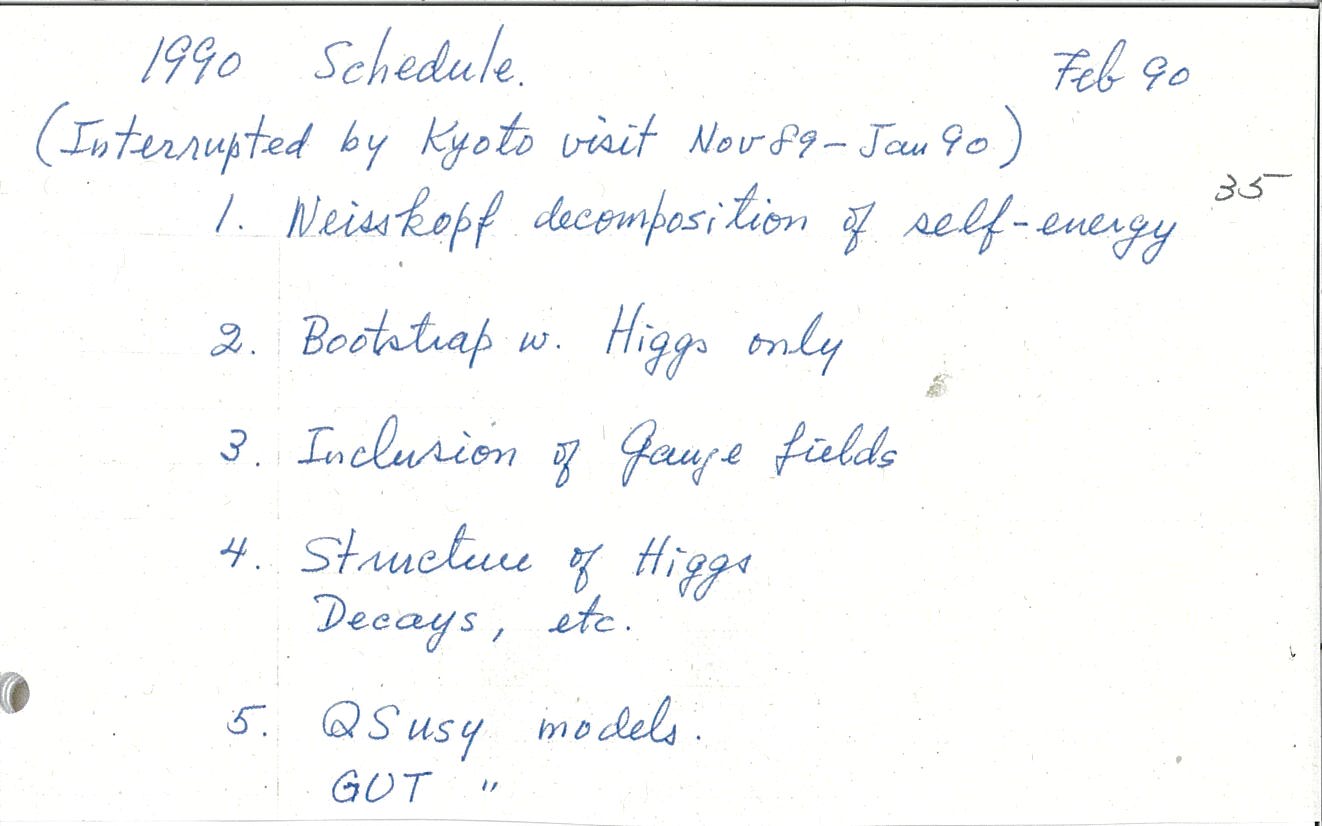 1990 Schedule. Feb 90
(Interrupted by Kyoto visit Nov 89 – Jan 90)
35
1. Weisskopf decomposition of self-energy
2. Bootstrap w. Higgs only
3. Inclusion of Gauge fields
4. Structure of Higgs
Decays, etc.
5. QSusy models.
GUT "